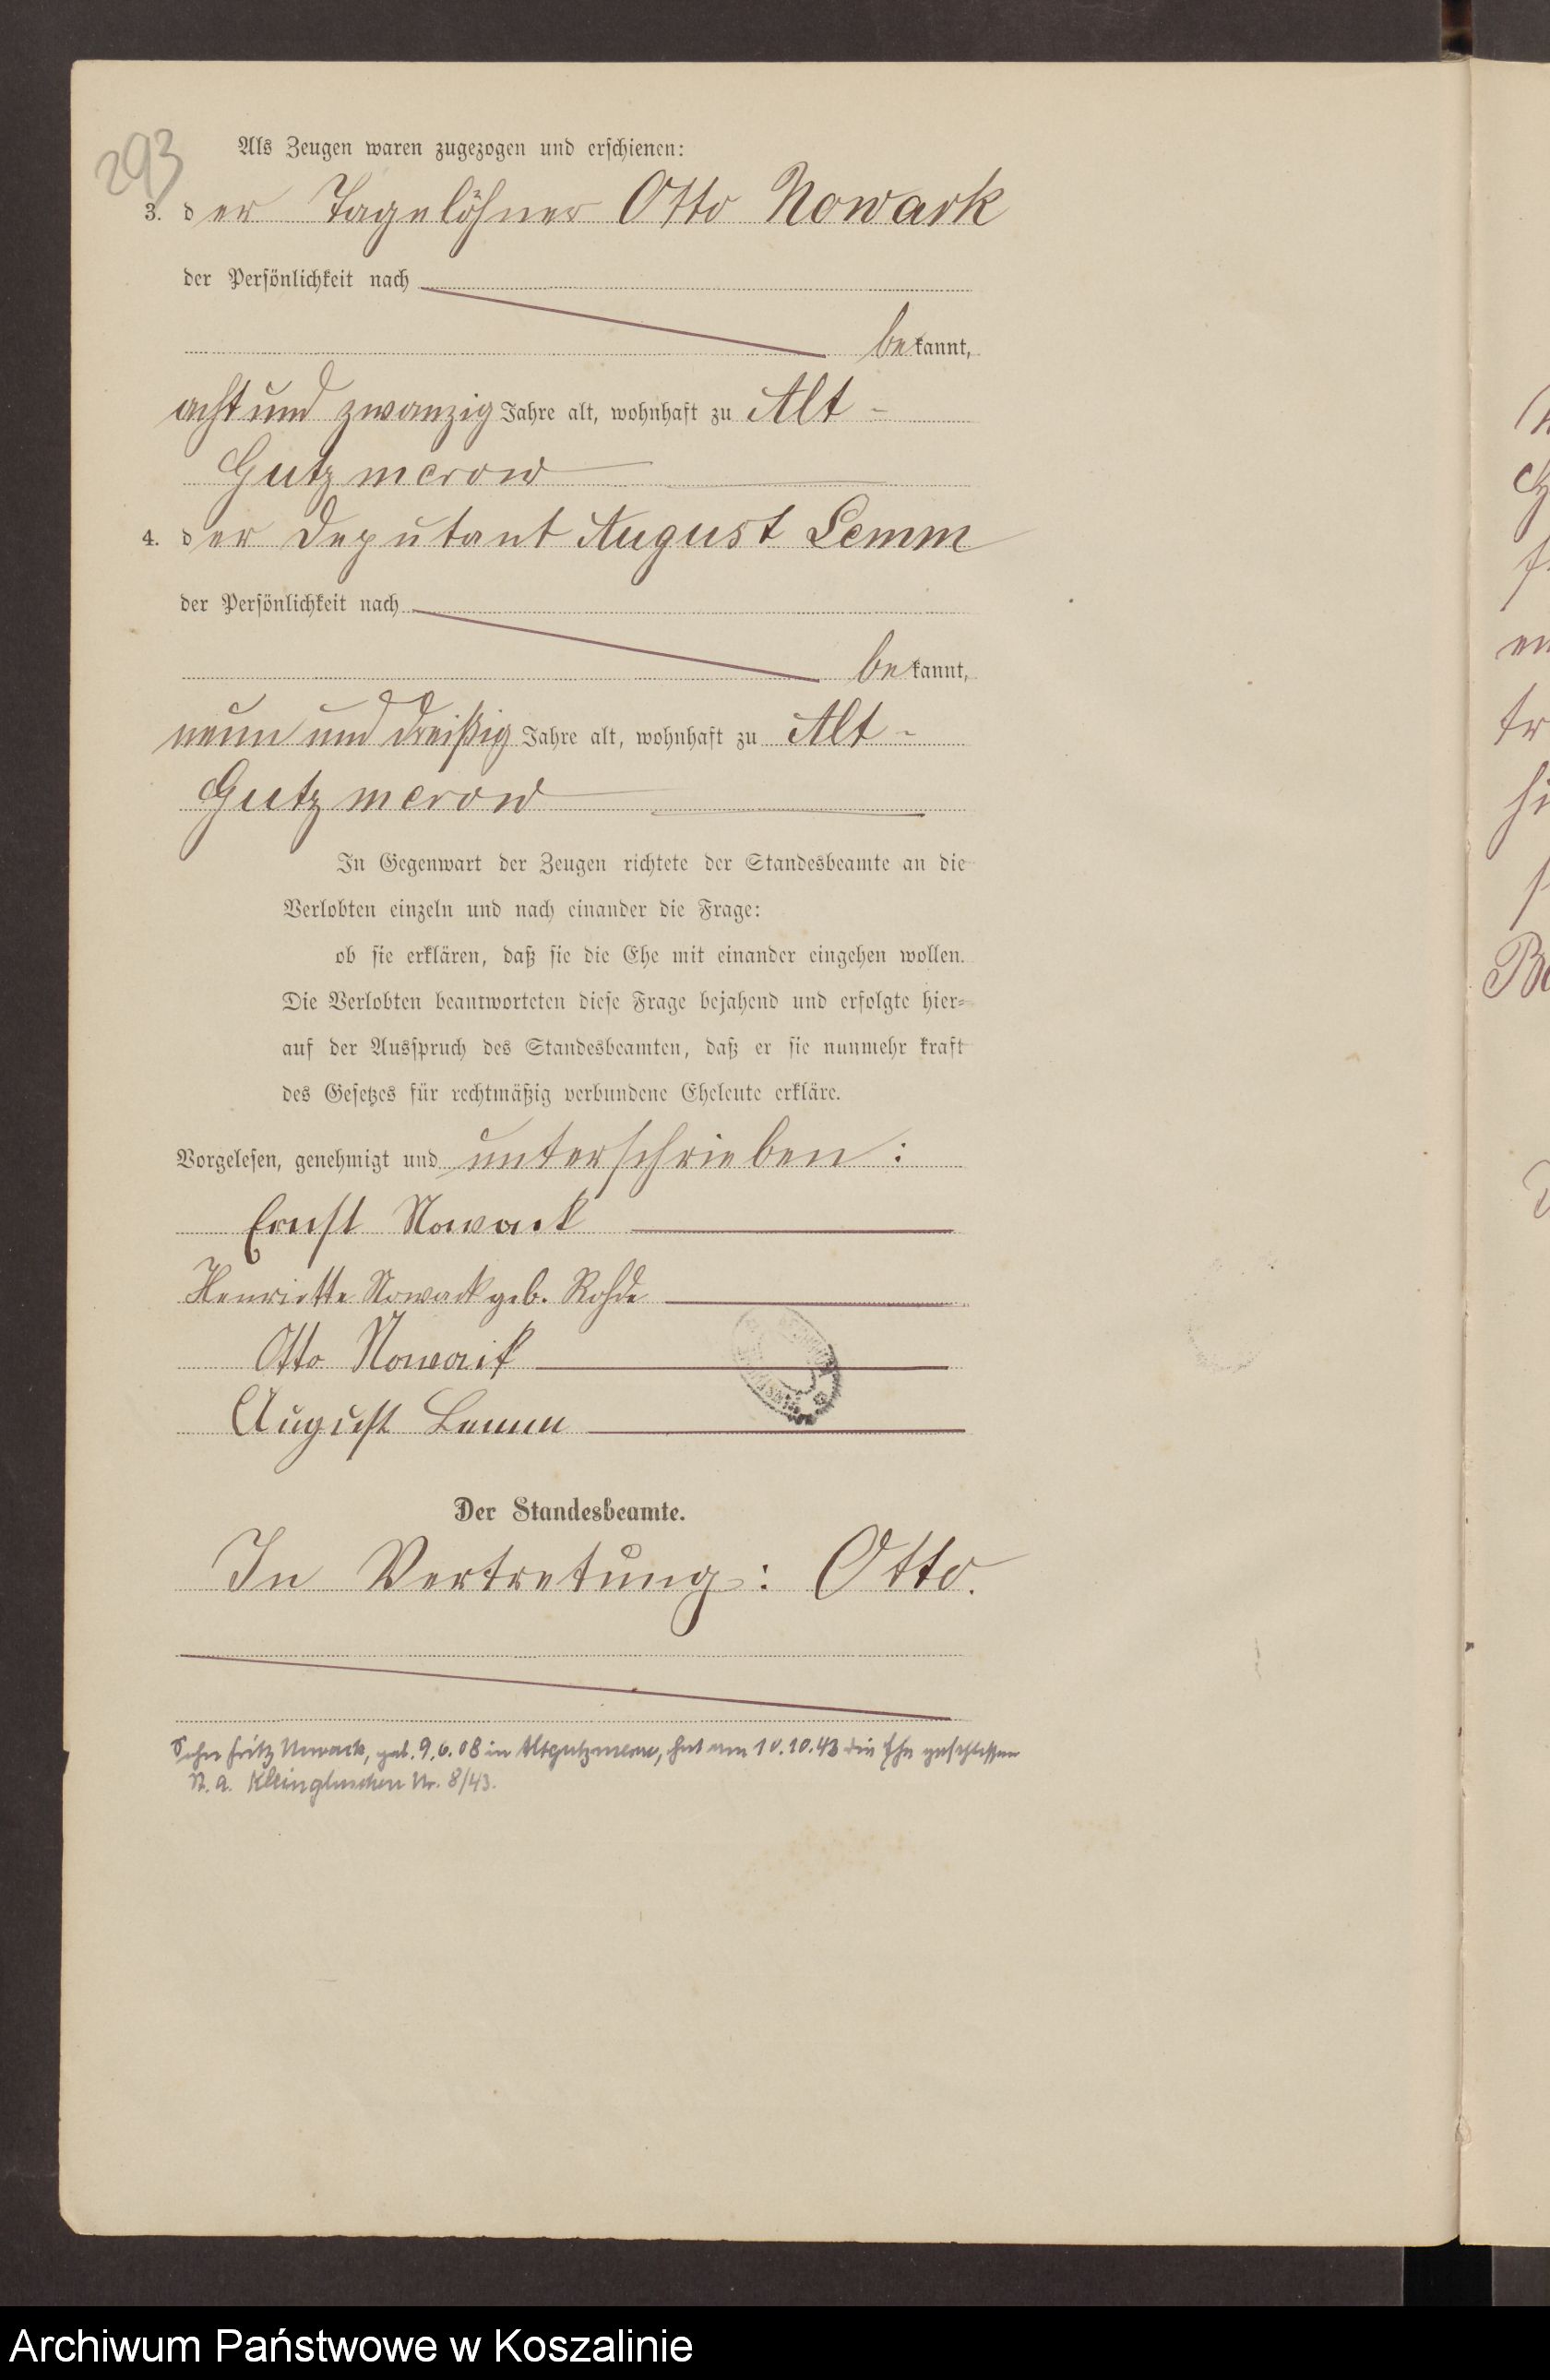 293
Als Zeugen waren zugezogen und erschienen:
3. der Tagelöhner Otto Nowark
der Persönlichkeit nach
bekannt,
acht und zwanzig Jahre alt, wohnhaft zu Alt-
Gutzmerow
4. der Deputant August Lemm
der Persönlichkeit nach
bekannt,
neun und dreißig Jahre alt, wohnhaft zu Alt-
Gutzmerow
In Gegenwart der Zeugen richtete der Standesbeamte an die
Verlobten einzeln und nach einander die Frage:
ob sie erklären, daß sie die Ehe mit einander eingehen wollen.
Die Verlobten beantworteten diese Frage bejahend und erfolgte hier-
auf der Ausspruch des Standesbeamten, daß er sie nunmehr kraft
des Gesetzes für rechtmäßig verbundene Eheleute erkläre.
Vorgelesen, genehmigt und unterschrieben:
Ernst Nowack
Henriette Nowack geb. Rohde
Otto Nowack
August Lemm
Der Standesbeamte.
In Vertretung: Otto.
Sohn Fritz Nowack, geb. 9.6.08 in Altgutzmerow, hat am 10.10.43 die Ehe geschlossen
St. A. Kleingluschen Nr. 8/43.
Archiwum Państwowe w Koszalinie